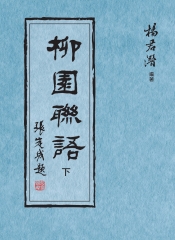 楊君潛 編著
柳園聯語 下
張定成題